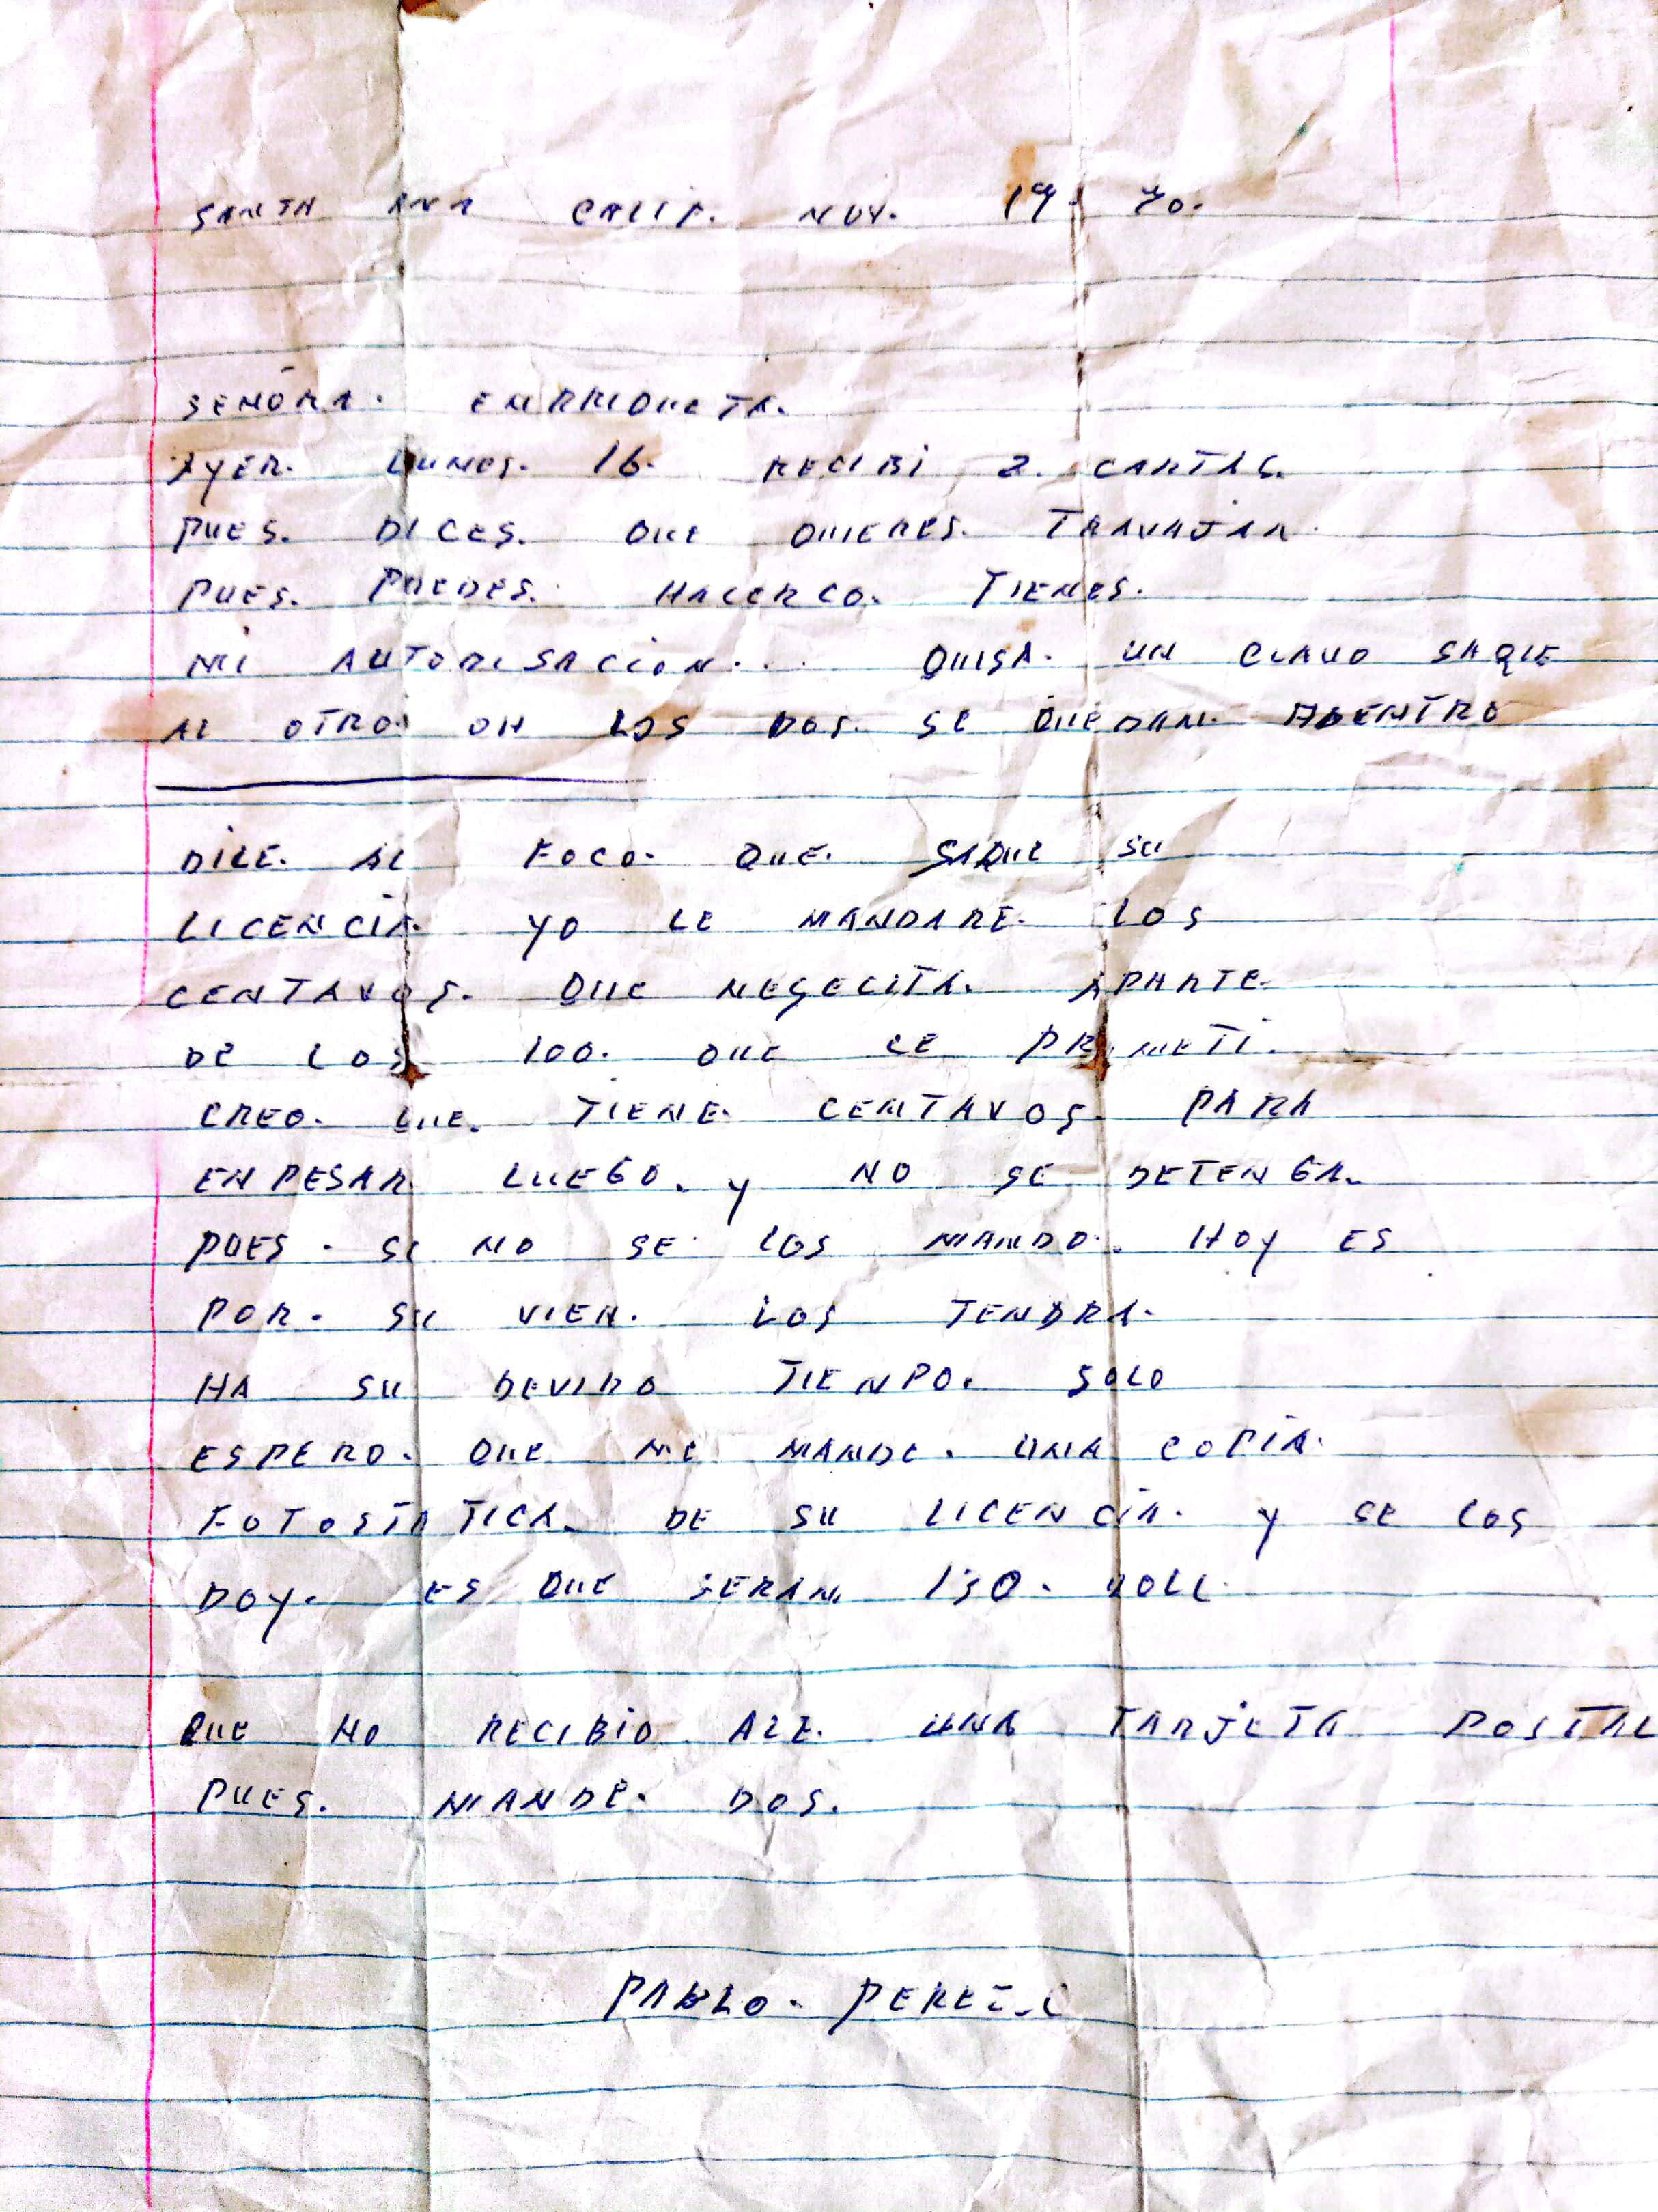 SANTA ANA CALIF. NOV. 19. 70.
SEÑORA. ENRRIQUETA.
AYER. LUNES. 16. RECIBI 2. CARTAS.
PUES. DICES. QUE QUIERES. TRAVAJAR.
PUES. PUEDES. HACERLO. TIENES.
MI AUTORISACION... QUISA. UN CLAVO SAQUE
AL OTRO. OH LOS DOS. SE QUEDAN. ADENTRO
DILE. AL FOCO. QUE. SAQUE SU
LICENCIA. YO LE MANDARE. LOS
CENTAVOS. QUE NESECITA. APARTE.
DE LOS 100. QUE LE PROMETI.
CREO. QUE. TIENE. CENTAVOS. PARA
ENPESAR LUEGO. Y NO SE DETENGA.
PUES. SI NO SE LOS MANDO. HOY ES
POR. SU VIEN. LOS TENDRA.
HA SU DEVIDO TIENPO. SOLO
ESPERO. QUE ME MANDE. UNA COPIA.
FOTOSTATICA. DE SU LICENCIA. Y SE LOS
DOY. ES QUE SERAN. 150. DOLL.
QUE NO RECIBIO ALE. UNA TARJETA POSTAL
PUES. MANDE. DOS.
PABLO. PEREZ.